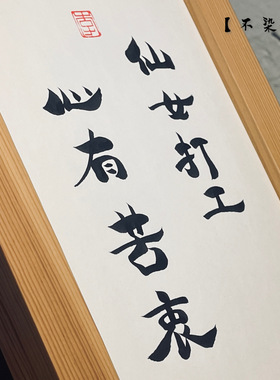 仙女打工
心有苦衷
【不染